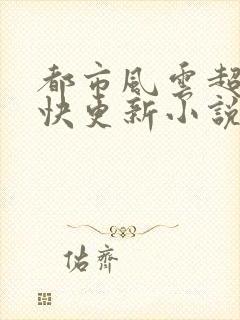 都市風雲超
快更新小說
佑齊